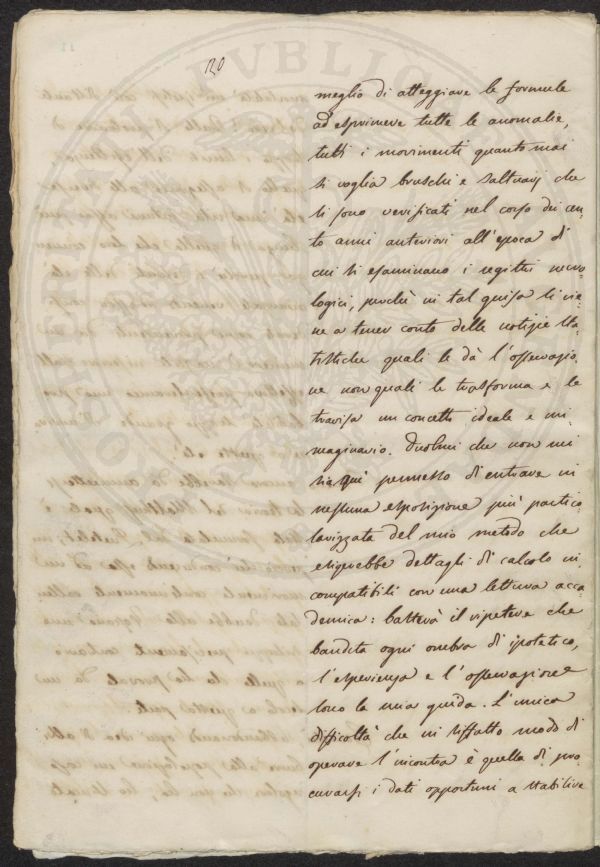 120
meglio di atteggiare le formule
ad esprimere tutte le anomalie,
tutti i movimenti quanto mai
si voglia bruschi e saltuarj che
si sono verificati nel corso dei cen-
to anni anteriori all'epoca di
cui si esaminano i registri necro-
logici, perchè in tal guisa si vie-
ne a tener conto delle notizie sta-
tistiche quali le dà l'osservazio
ne non quali le trasforma e le
travisa un concetto ideale e im-
maginario. Duolmi che non mi
sia quì permesso di entrare in
nessuna esposizione più partico-
larizzata del mio metodo che
esigerebbe dettagli di calcolo in-
compatibili con una lettura acca-
demica: batterà il ripetere che
bandita ogni ombra di ipotetico,
l'esperienza e l'osservazione
sono la mia guida. L'unica
difficoltà che in siffatto modo di
operare s'incontra è quella di pro-
curarsi i dati opportuni a stabilire